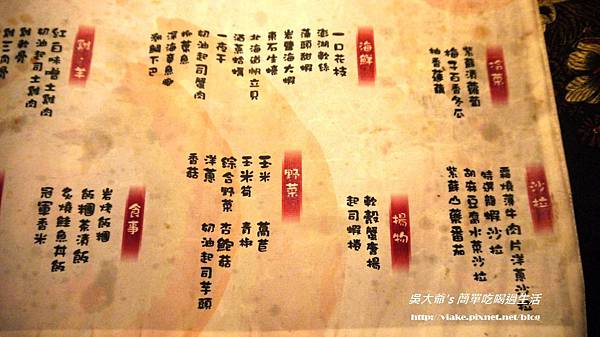 冷菜
紫蘇漬蘿蔔
梅子百香冬瓜
柚香蓮藕
海鮮
一口花枝
澎湖軟絲
蒲頭甜蝦
岩鹽海大蝦
東石生蠔
北海道帆立貝
酒蒸蛤蜊
一夜干
奶油起司蟹肉
柳葉魚
深海章魚
潮鯛下巴
雞．羊
紅白味噌土雞肉
奶油起司土雞肉
雞軟骨
雞三角骨
沙拉
霜燒薄牛肉片洋蔥沙拉
特選龍蝦沙拉
胡麻豆腐水菜沙拉
紫蘇山藥番茄
揚物
軟殼蟹唐揚
起司蝦捲
野菜
玉米 萵苣
玉米筍 青椒
綜合野菜 杏鮑菇
洋蔥 奶油起司芋頭
香菇
食事
岩烤飯糰
飯糰茶漬飯
炙燒鮭魚丼飯
冠軍香米
吳大爺's 簡單吃喝過生活
http://vlake.pixnet.net/blog